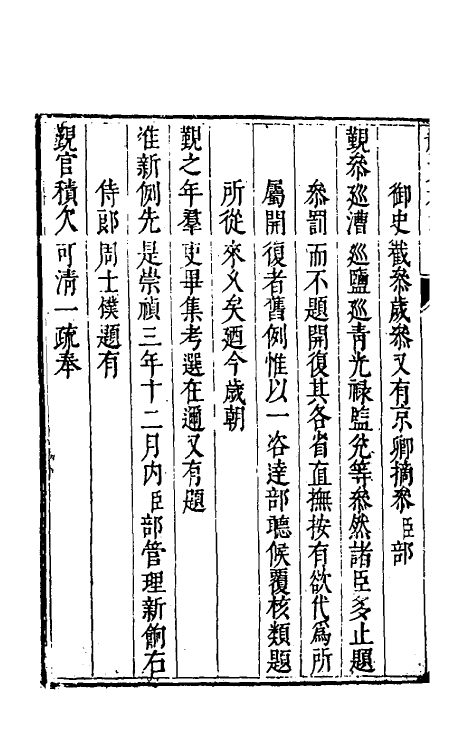 御史截參歲參又有京卿摘參臣部
覲參巡漕巡鹽巡青光祿監兌等參然諸臣多止題
參罰而不題開復其各省直撫按有欲代爲所
屬開復者舊例惟以一咨達部聽候覆核類題
所從來乆矣廼今歲朝
覲之年羣吏畢集考選在邇又有題
准新例先是崇禎三年十二月內臣部管理新餉右
侍郎周士樸題有
覲官積欠可清一疏奉